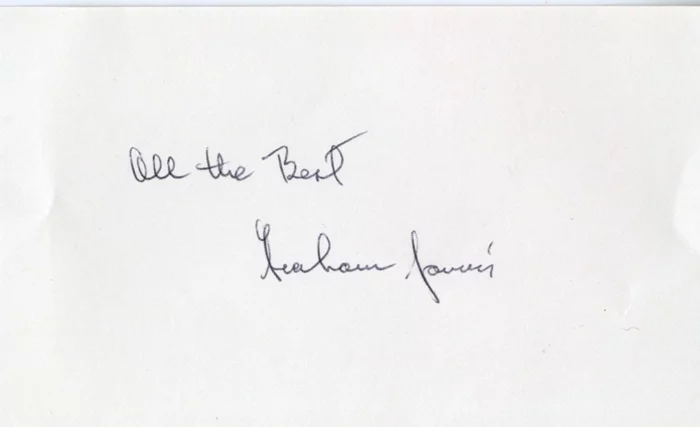 All the Best
Graham Jarvis